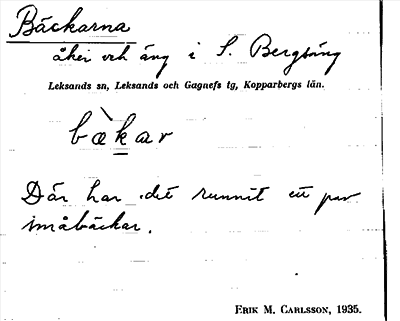 Bäckarna
åker och äng i S. Bergsäng
Leksands sn, Leksands och Gagnefs tg, Kopparbergs län.
bækar
Där har det runnit ett par
småbäckar.
ERIK M. CARLSSON, 1935.